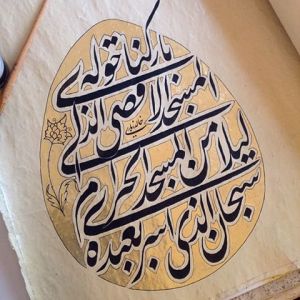 سبحان الذی اسری بعبده
لیلا من المسجد الحرام
المسجد الاقصی الذی
بارکنا حوله